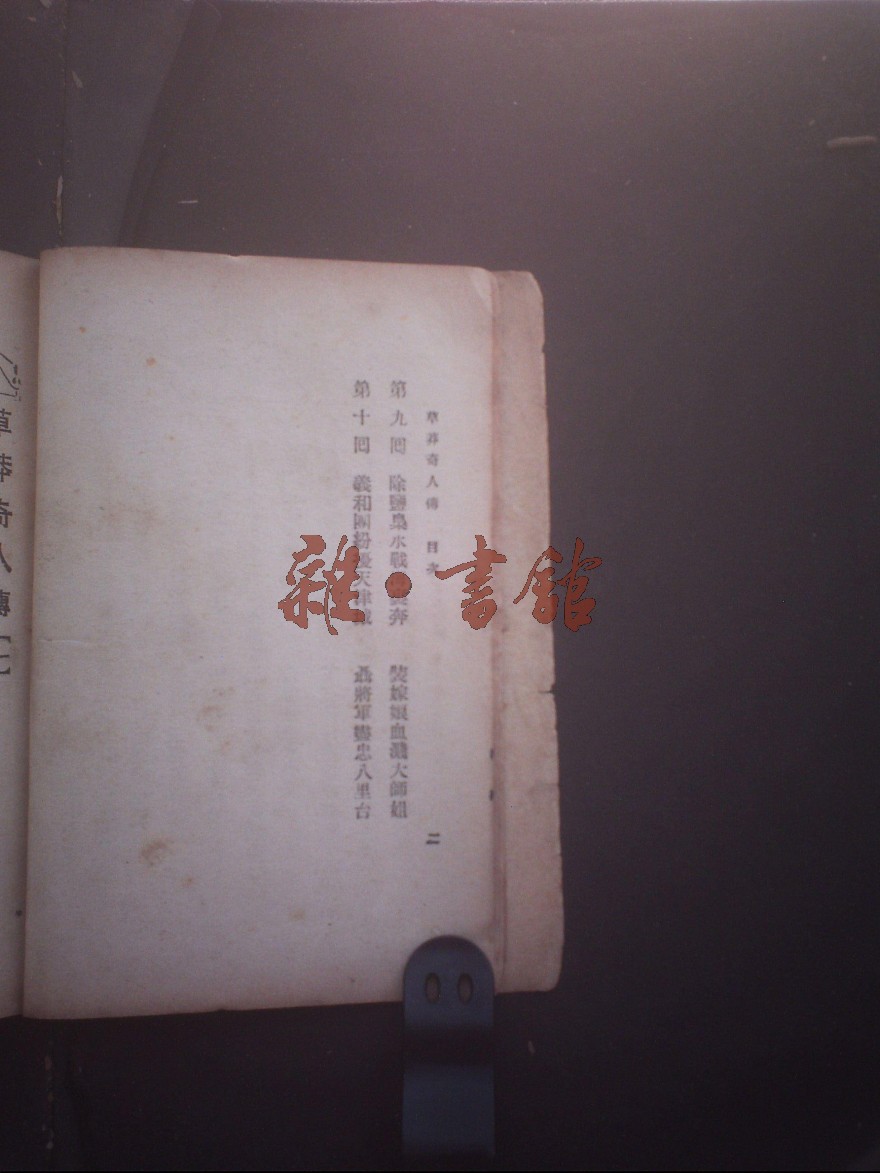 草莽奇人傳 目次
二
第九回 除鹽梟水戰奔 裝嫁娘血濺大師姐
第十回 義和團紛擾天津城 聶將軍盡忠八里台
草莽奇人傳
雜·書館